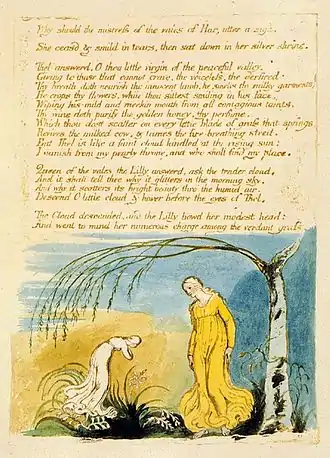 Why should the mistress of the vales of Har, utter a sigh.
She ceasd & smild in tears, then sat down in her silver shrine.
Thel answerd, O thou little virgin of the peaceful valley.
Giving to those that cannot crave, the voiceless, the o'ertired.
Thy breath doth nourish the innocent lamb, he smells thy milky garments,
He crops thy flowers, while thou sittest smiling in his face,
Wiping his mild and meekin mouth from all contagious taints.
Thy wine doth purify the golden honey, thy perfume,
Which thou dost scatter on every little blade of grass that springs
Revives the milked cow, & tames the fire-breathing steed.
But Thel is like a faint cloud kindled at the rising sun:
I vanish from my pearly throne, and who shall find my place.
Queen of the vales the Lilly answerd, ask the tender cloud,
And it shall tell thee why it glitters in the morning sky,
And why it scatters its bright beauty thro the humid air.
Descend O little cloud & hover before the eyes of Thel.
The Cloud descended, and the Lilly bowd her modest head:
And went to mind her numerous charge among the verdant grass.